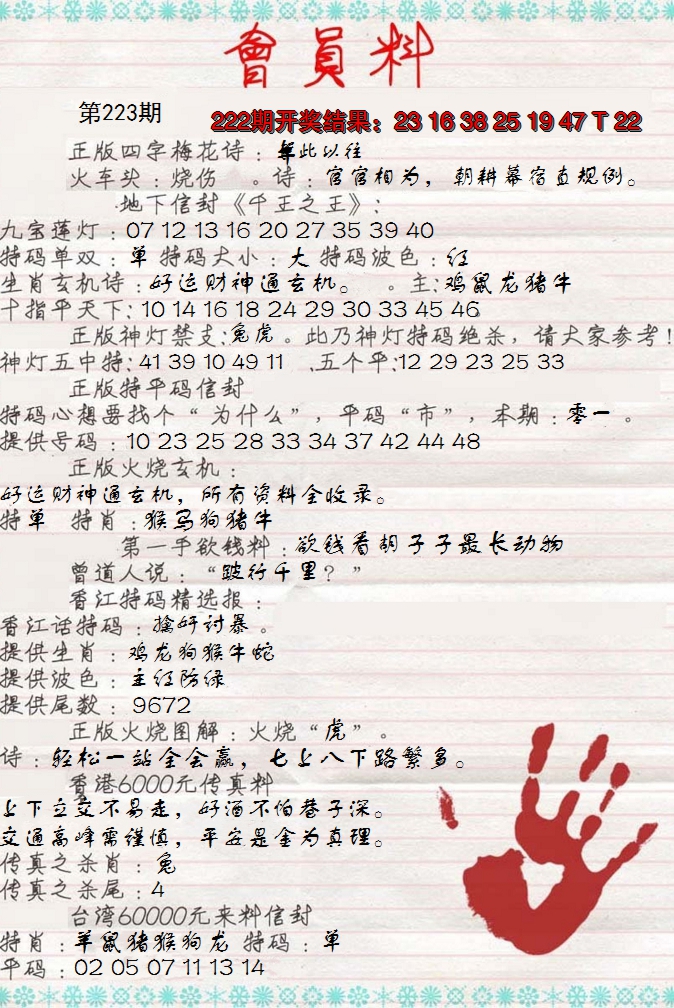 會員料
第223期
222期开奖结果：23 16 38 25 19 47 T 22
正版四字梅花诗：華此以往
火车头：烧伤 。诗：官官相为，朝耕幕宿直规例。
地下信封《千王之王》：
九宝莲灯：07 12 13 16 20 27 35 39 40
特码单双：单 特码大小：大 特码波色：红
生肖玄机诗：好运财神通玄机。 。主：鸡鼠龙猪牛
十指平天下：10 14 16 18 24 29 30 33 45 46
正版神灯禁支：兔虎。此乃神灯特码绝杀，请大家参考！
神灯五中特：41 39 10 49 11 .五个平：12 29 23 25 33
正版特平码信封
特码心想要找个“为什么”，平码“市”，本期：零一 。
提供号码：10 23 25 28 33 34 37 42 44 48
正版火烧玄机：
好运财神通玄机，所有资料全收录。
特单 特肖：猴马狗猪牛
第一手欲钱料：欲钱看胡子子最长动物
曾道人说：“跛行千里？”
香江特码精选报：
香江话特码：擒奸讨暴。
提供生肖：鸡龙狗猴牛蛇
提供波色：主红防绿
提供尾数：9672
正版火烧图解：火烧“虎”。
诗：轻松一站全会赢，七上八下路繁多。
香港6000元传真料
上下立交不易走，好酒不怕巷子深。
交通高峰需谨慎，平安是金为真理。
传真之杀肖：兔
传真之杀尾：4
台湾60000元来料信封
特肖：羊鼠猪猴狗龙 特码：单
平码：02 05 07 11 13 14